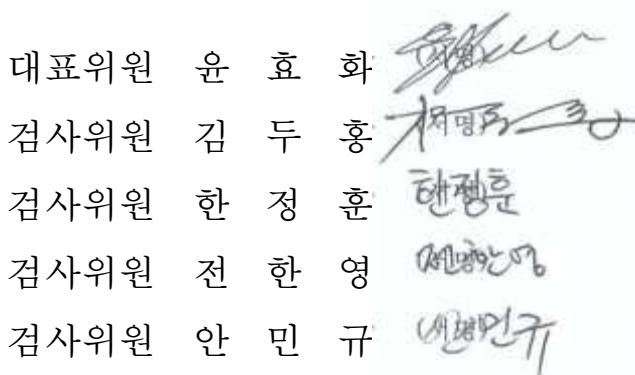 대표위원 윤 효 화
검사위원 김 두 홍
검사위원 한 정 훈 한정훈
검사위원 전 한 영
검사위원 안 민 규